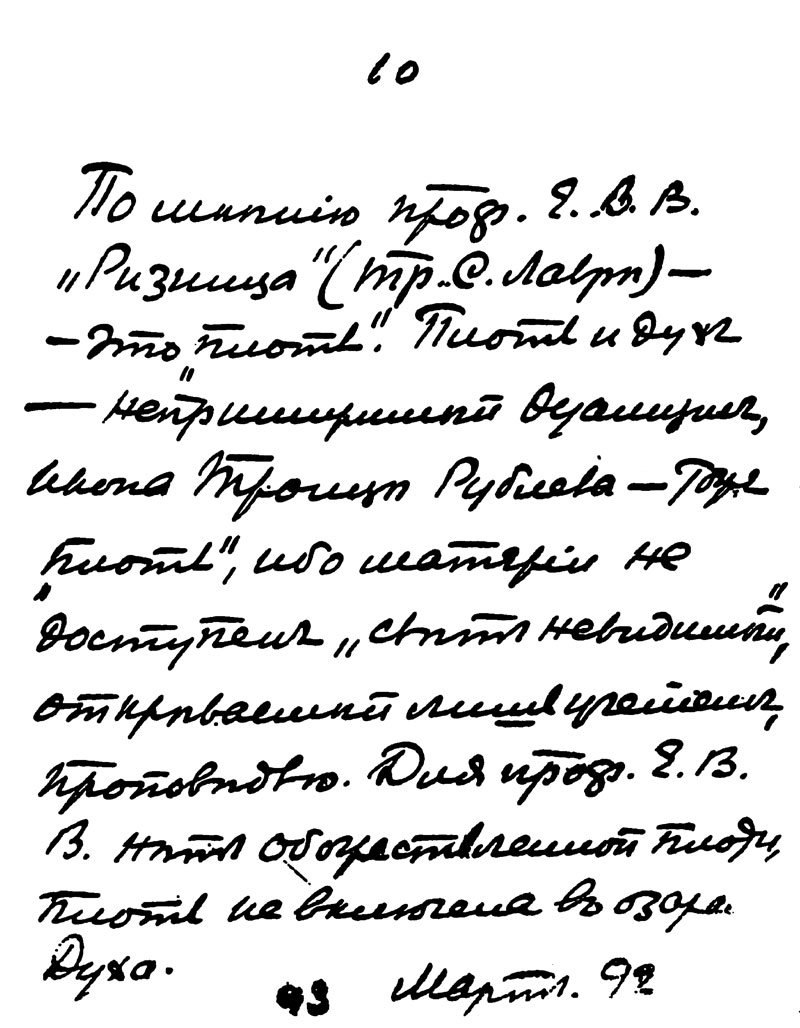 10
По мнѣнію проф. Е. В. В.
„Ризница" (Тр. С. Лавры) —
— это „плоть". Плоть и духъ
— непримиримый дуализмъ,
икона Троицы Рублева —
„плоть", ибо матеріи не
доступенъ „свѣтъ невидимый",
открываемый лишь ученіемъ,
проповѣдью. Для проф. Е. В.
В. нѣтъ обожествленной плоти,
плоть не включена въ
Духа.
93 Мартъ. 92